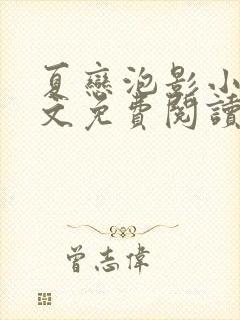 夏戀泡影小
文免費閱讀
曾志偉